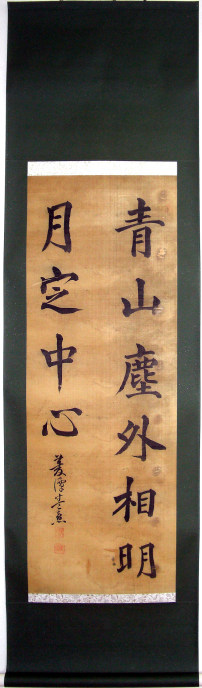 青山塵外相明
月定中心